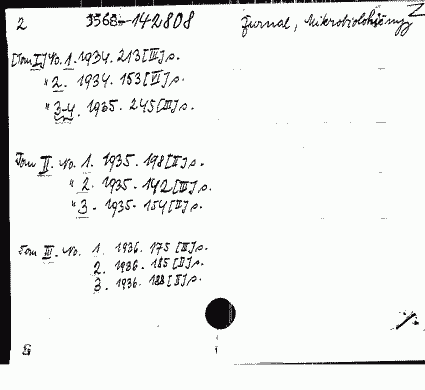 2 3568-142808 Žurnal, Mikrobiolohičnyj Z
[Tom I] No. 1. 1934. 213 [III] s.
" 2. 1934. 153 [VI] s.
" 3-4. 1935. 245 [III] s.
Tom II. No. 1. 1935. 198 [II] s.
" 2. 1935. 142 [III] s.
" 3. 1935. 154 [II] s.
Tom III. No. 1. 1936. 175 [III] s.
2. 1936. 185 [I] s.
3. 1936. 188 [II] s.